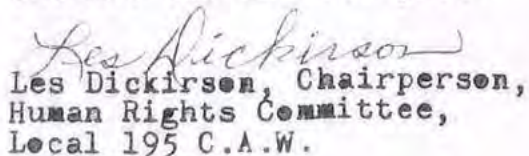 Les Dickirson
Les Dickirson, Chairperson,
Human Rights Committee,
Local 195 C.A.W.